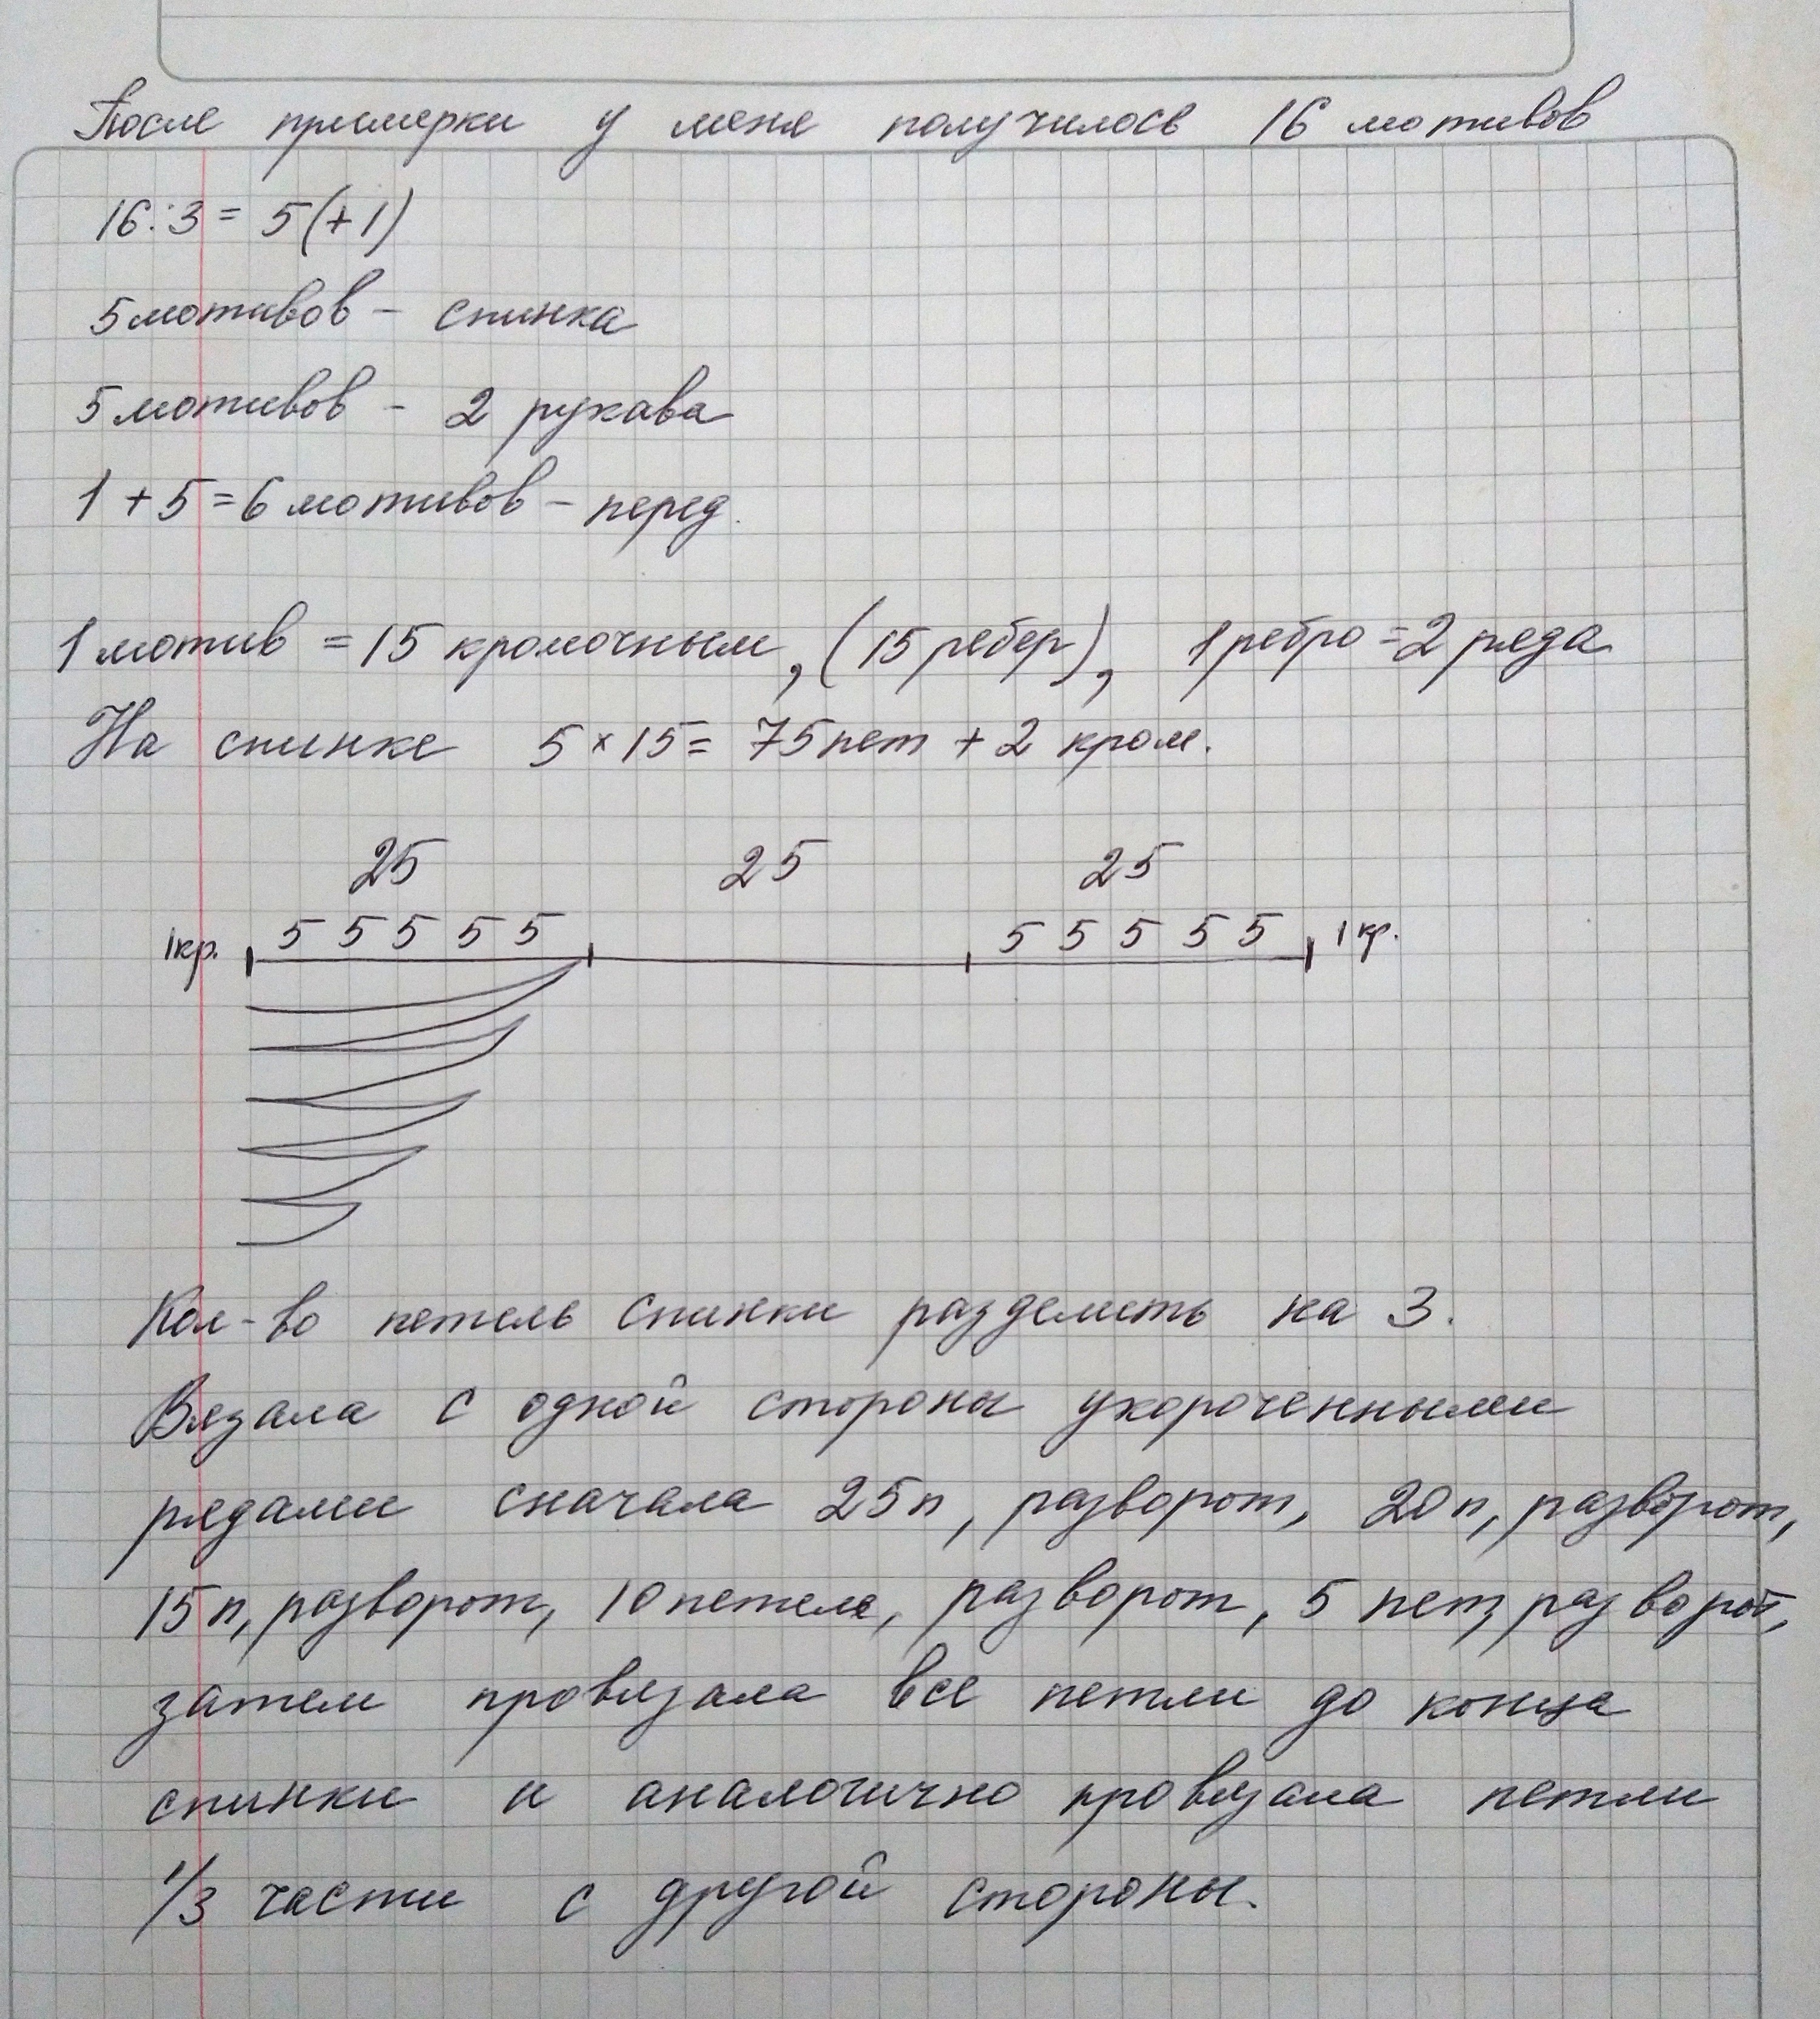 После примерки у меня получилось 16 мотивов
16:3= 5(+1)
5 мотивов - спинка
5 мотивов - 2 рукава
1+5=6 мотивов - перед.
1 мотив = 15 кромочным, (15 ребер), 1 ребро = 2 ряда
На спинке 5×15= 75 пет + 2 кром.
25 25 25
1кр. 5 5 5 5 5 5 5 5 5 5 1 кр.
Кол-во петель спинки разделить на 3.
Вязала с одной стороны укороченными
рядами сначала 25п, разворот, 20п, разворот,
15п, разворот, 10 петель, разворот, 5 пет, разворот,
затем провязала все петли до конца
спинки и аналогично провязала петли
1/3 части с другой стороны.